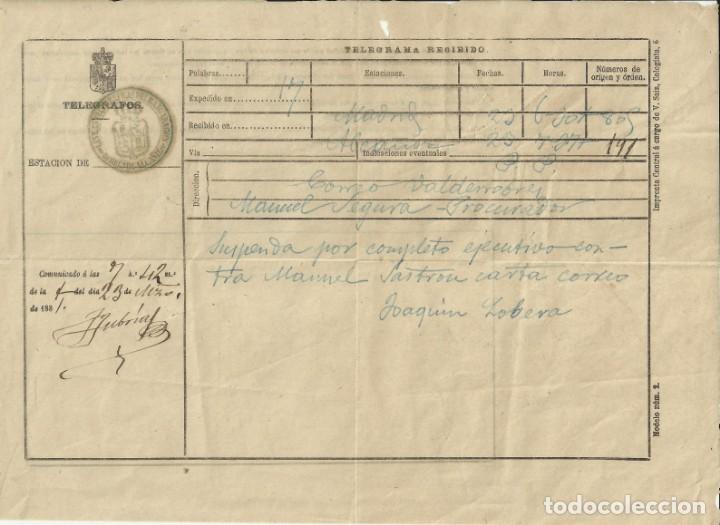 TELEGRAMA RECIBIDO.
TELEGRAFOS.
ESTACION DE
Palabras.
Estaciones.
Fechas.
Horas.
Números de origen y órden.
17
Expedido en
Madrid 23 6
Recibido en
Alcañiz 23 7
191
Via
Indicaciones eventuales
P. P.
Direccion.
Correo Valderrobres
Manuel Segura - Procurador
Suspenda por completo ejecutivo con-
tra Manuel Sastron carta correo
Joaquin Lobera
Comunicado á las 7 h. 42 m.s
de la t del dia 23 de Mzo.
de 1881.
Imprenta Central á cargo de V. Saiz, Colegiata, 6
Modelo núm. 2.
todocoleccion.net